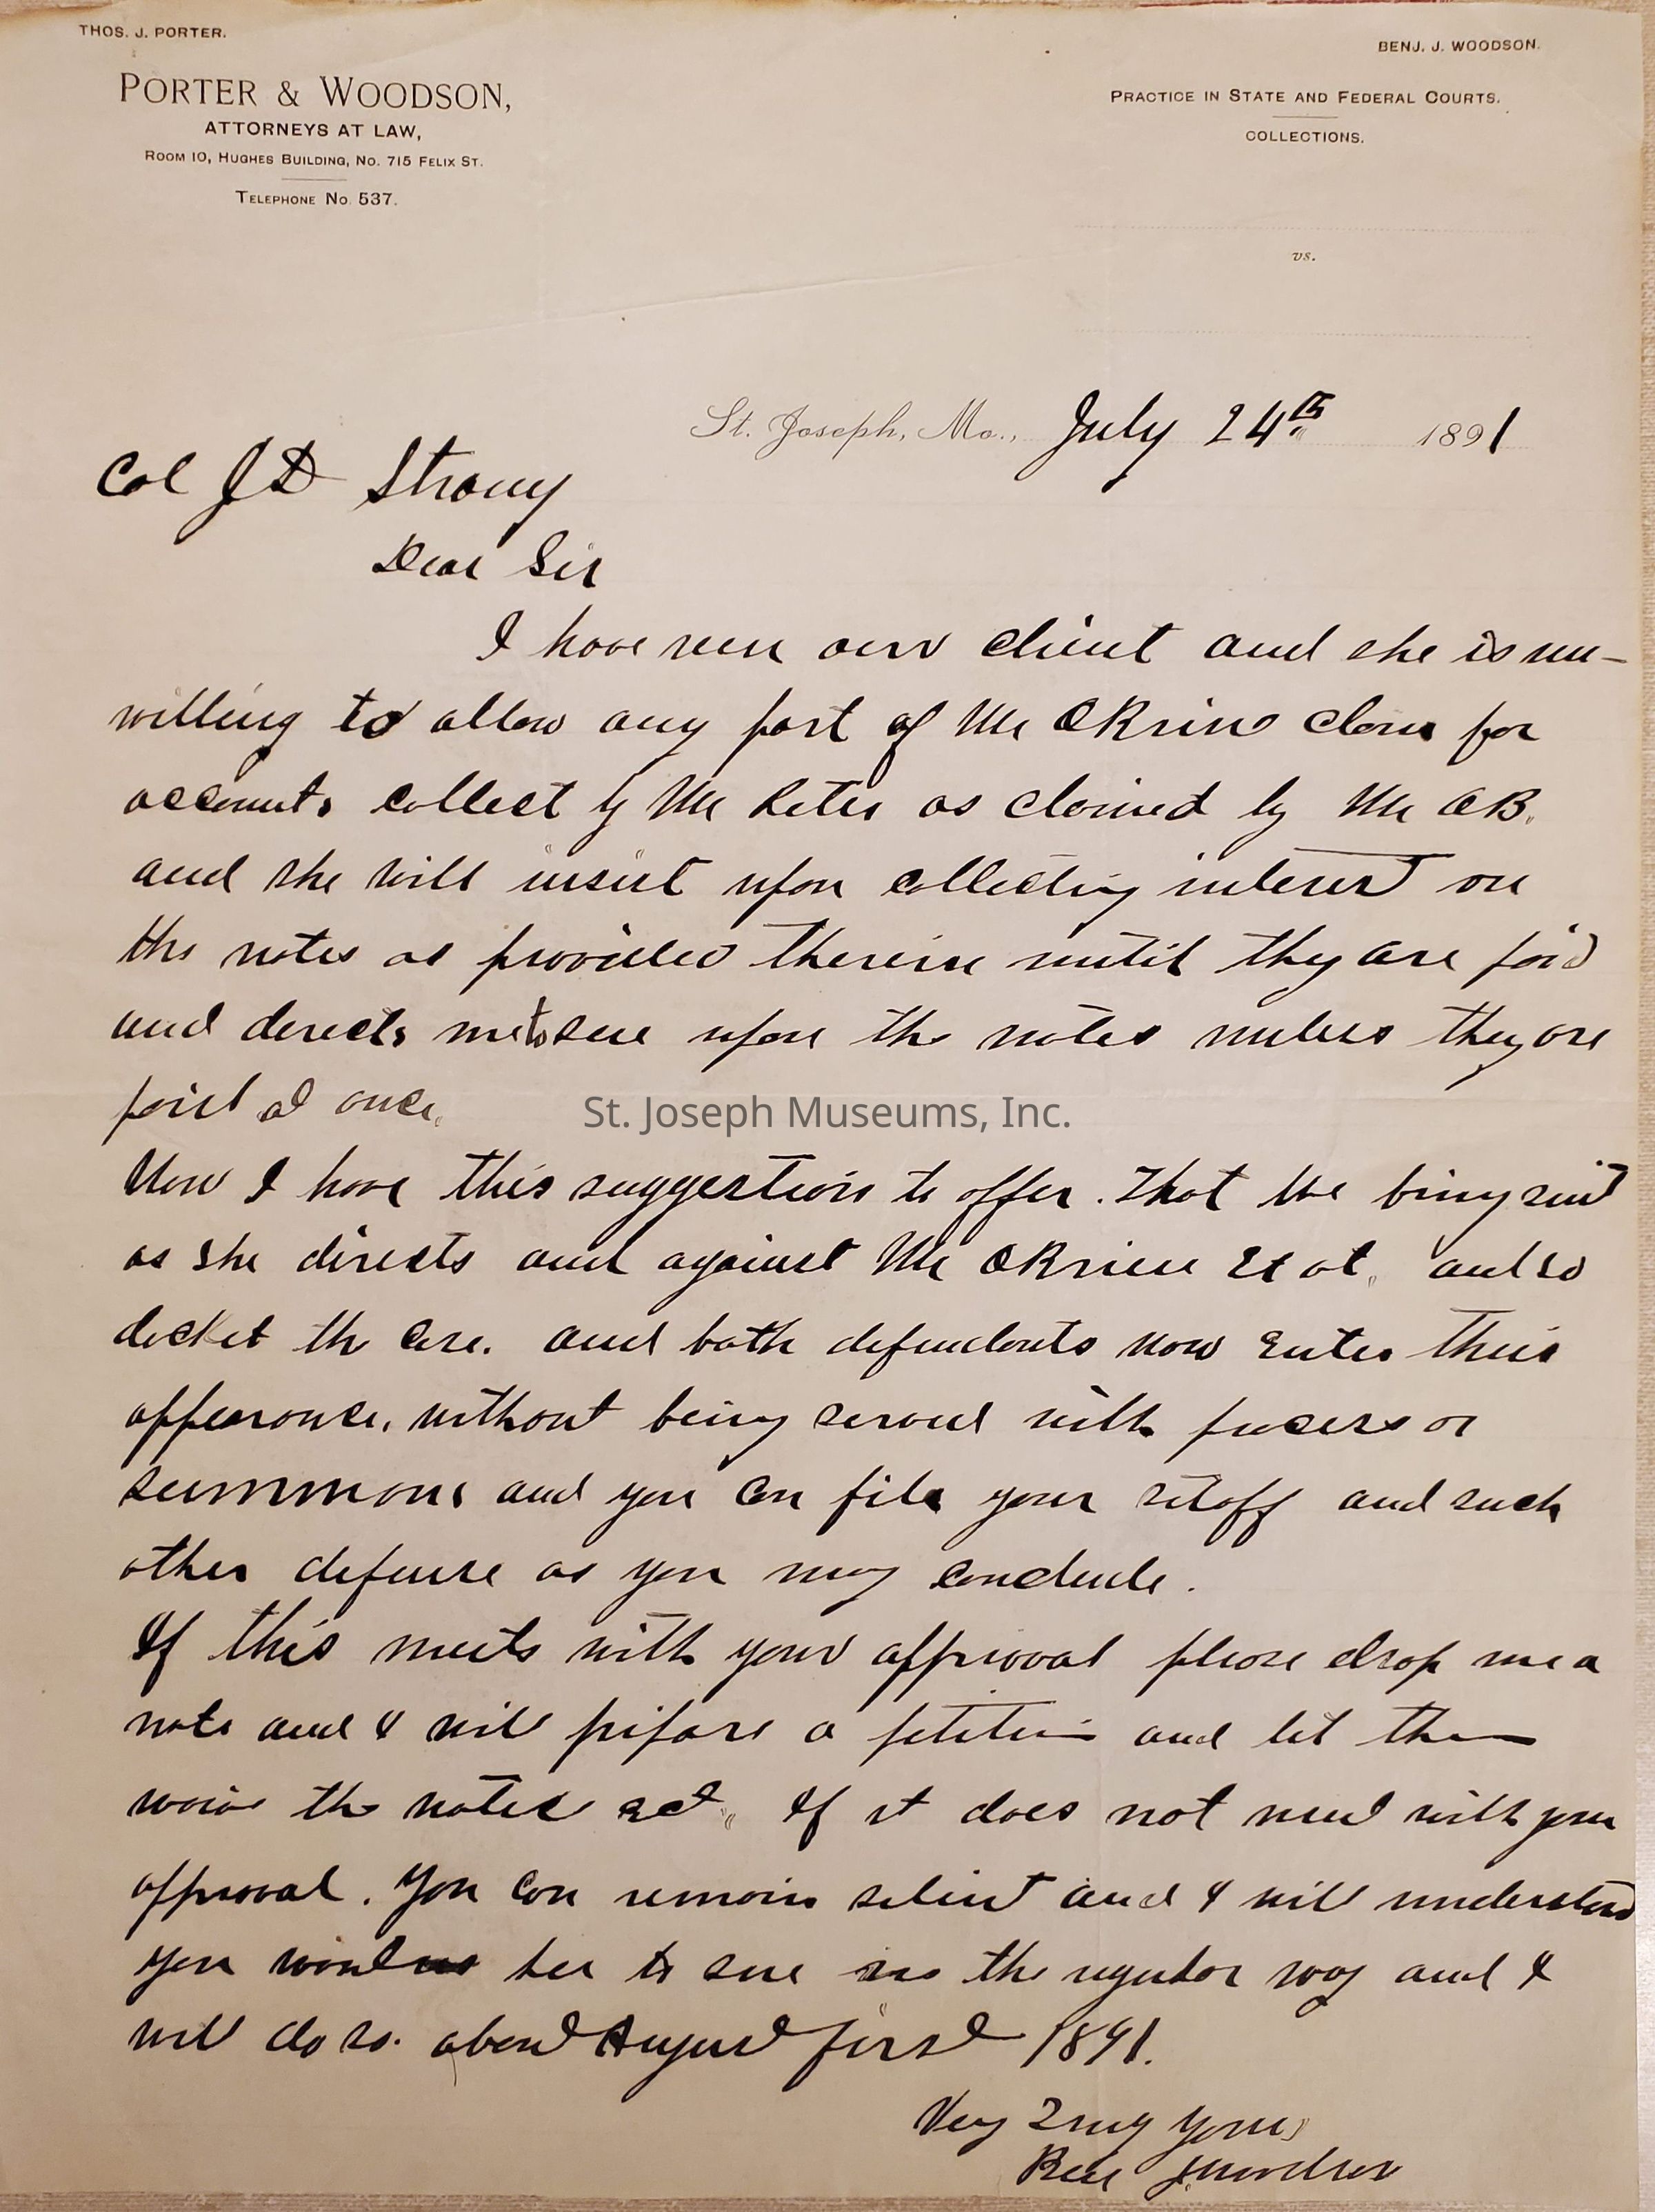 THOS. J. PORTER.
BENJ. J. WOODSON.
PORTER & WOODSON,
ATTORNEYS AT LAW,
ROOM 10, HUGHES BUILDING, NO. 715 FELIX ST.
TELEPHONE NO. 537.
PRACTICE IN STATE AND FEDERAL COURTS.
COLLECTIONS.
vs.
St. Joseph, Mo., July 24th 1891
Col J D Strong
Dear Sir
I have seen our client and she is un-
willing to allow any part of Mr OBrien claim for
accounts collect by Mr as claimed by Mr OB.
and she will insist upon collecting interest on
the notes as provided therein until they are paid
and directs me to sue upon the notes unless they are
paid at once.
St. Joseph Museums, Inc.
Now I have this suggestion to offer. That we bring suit
as she directs and against Mr OBrien et al. and so
docket the case. and both defendants now enter their
appearance. without being served with process or
summons and you can file your setoff and such
other defense as you may conclude.
If this meets with your approval please drop me a
note and I will prepare a petition and let them
waive the notice ect. If it does not meet with your
approval. You can remain silent and I will understand
you her to sue in the regular way and I
will do so. about August first 1891.
Very Truly Yours
Ben J. Woodson